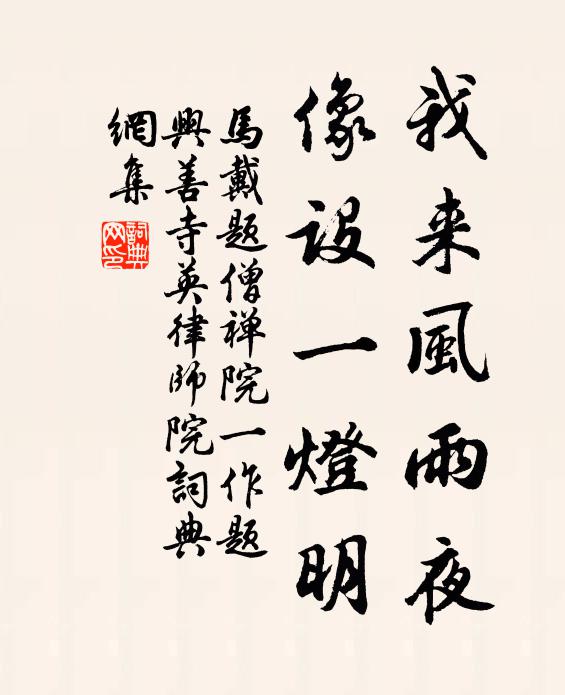 我来風雨夜
像設一燈明
馬戴题僧禅院一作题
興善寺英律師院詞典
網集
詞典网印